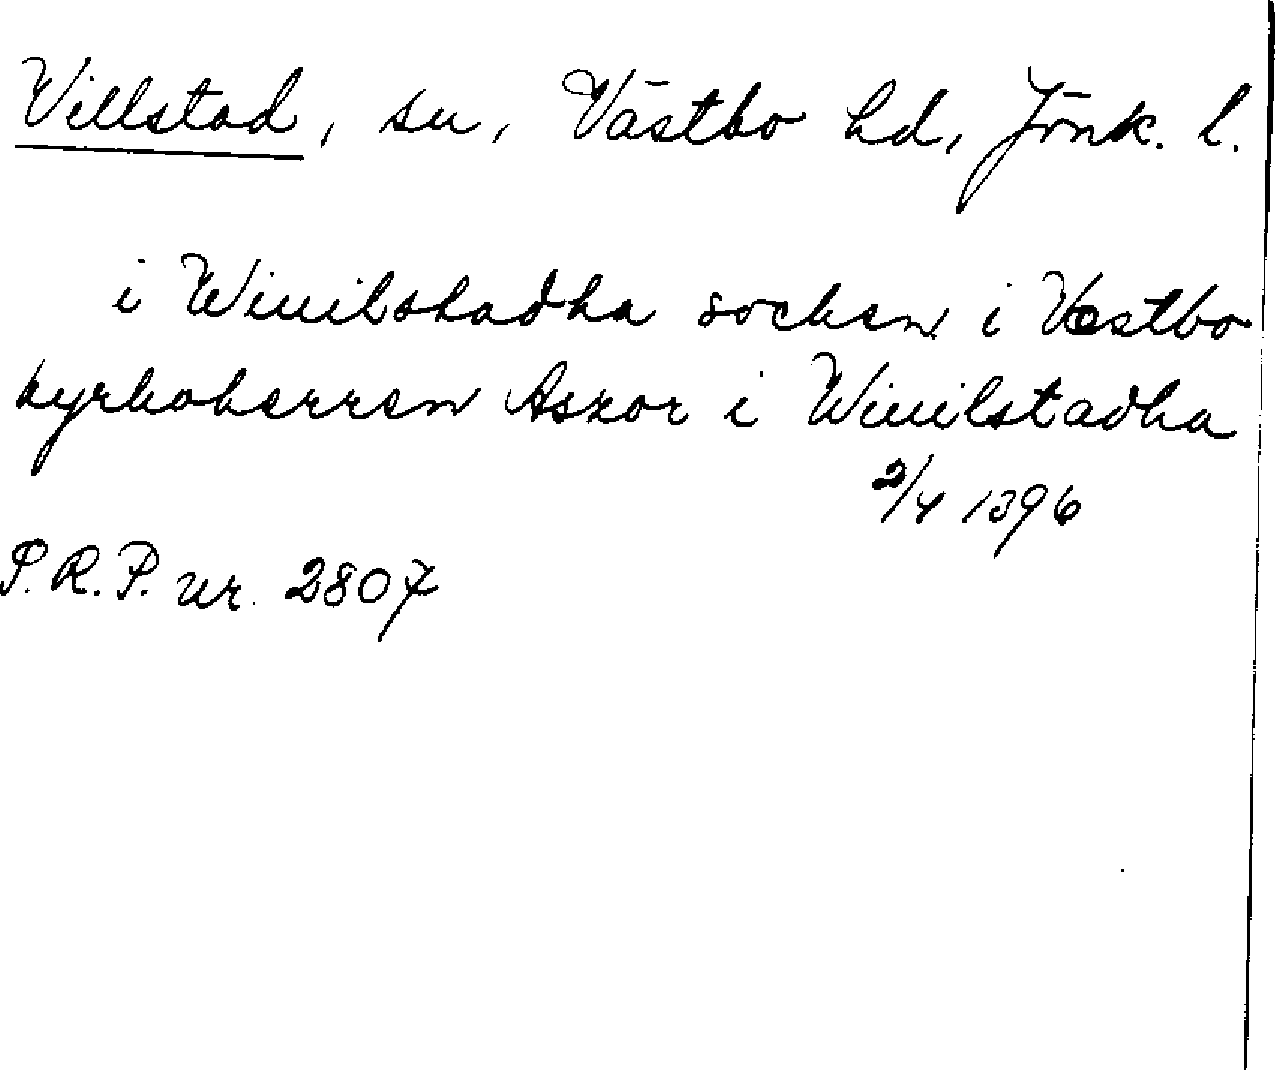 Villstad, sn, Västbo hd, Jönk. l.
i Winilstadha socken i Væstbo
kyrkoherren Aszor i Winilstadha
2/4 1396
P.R.P. nr. 2807